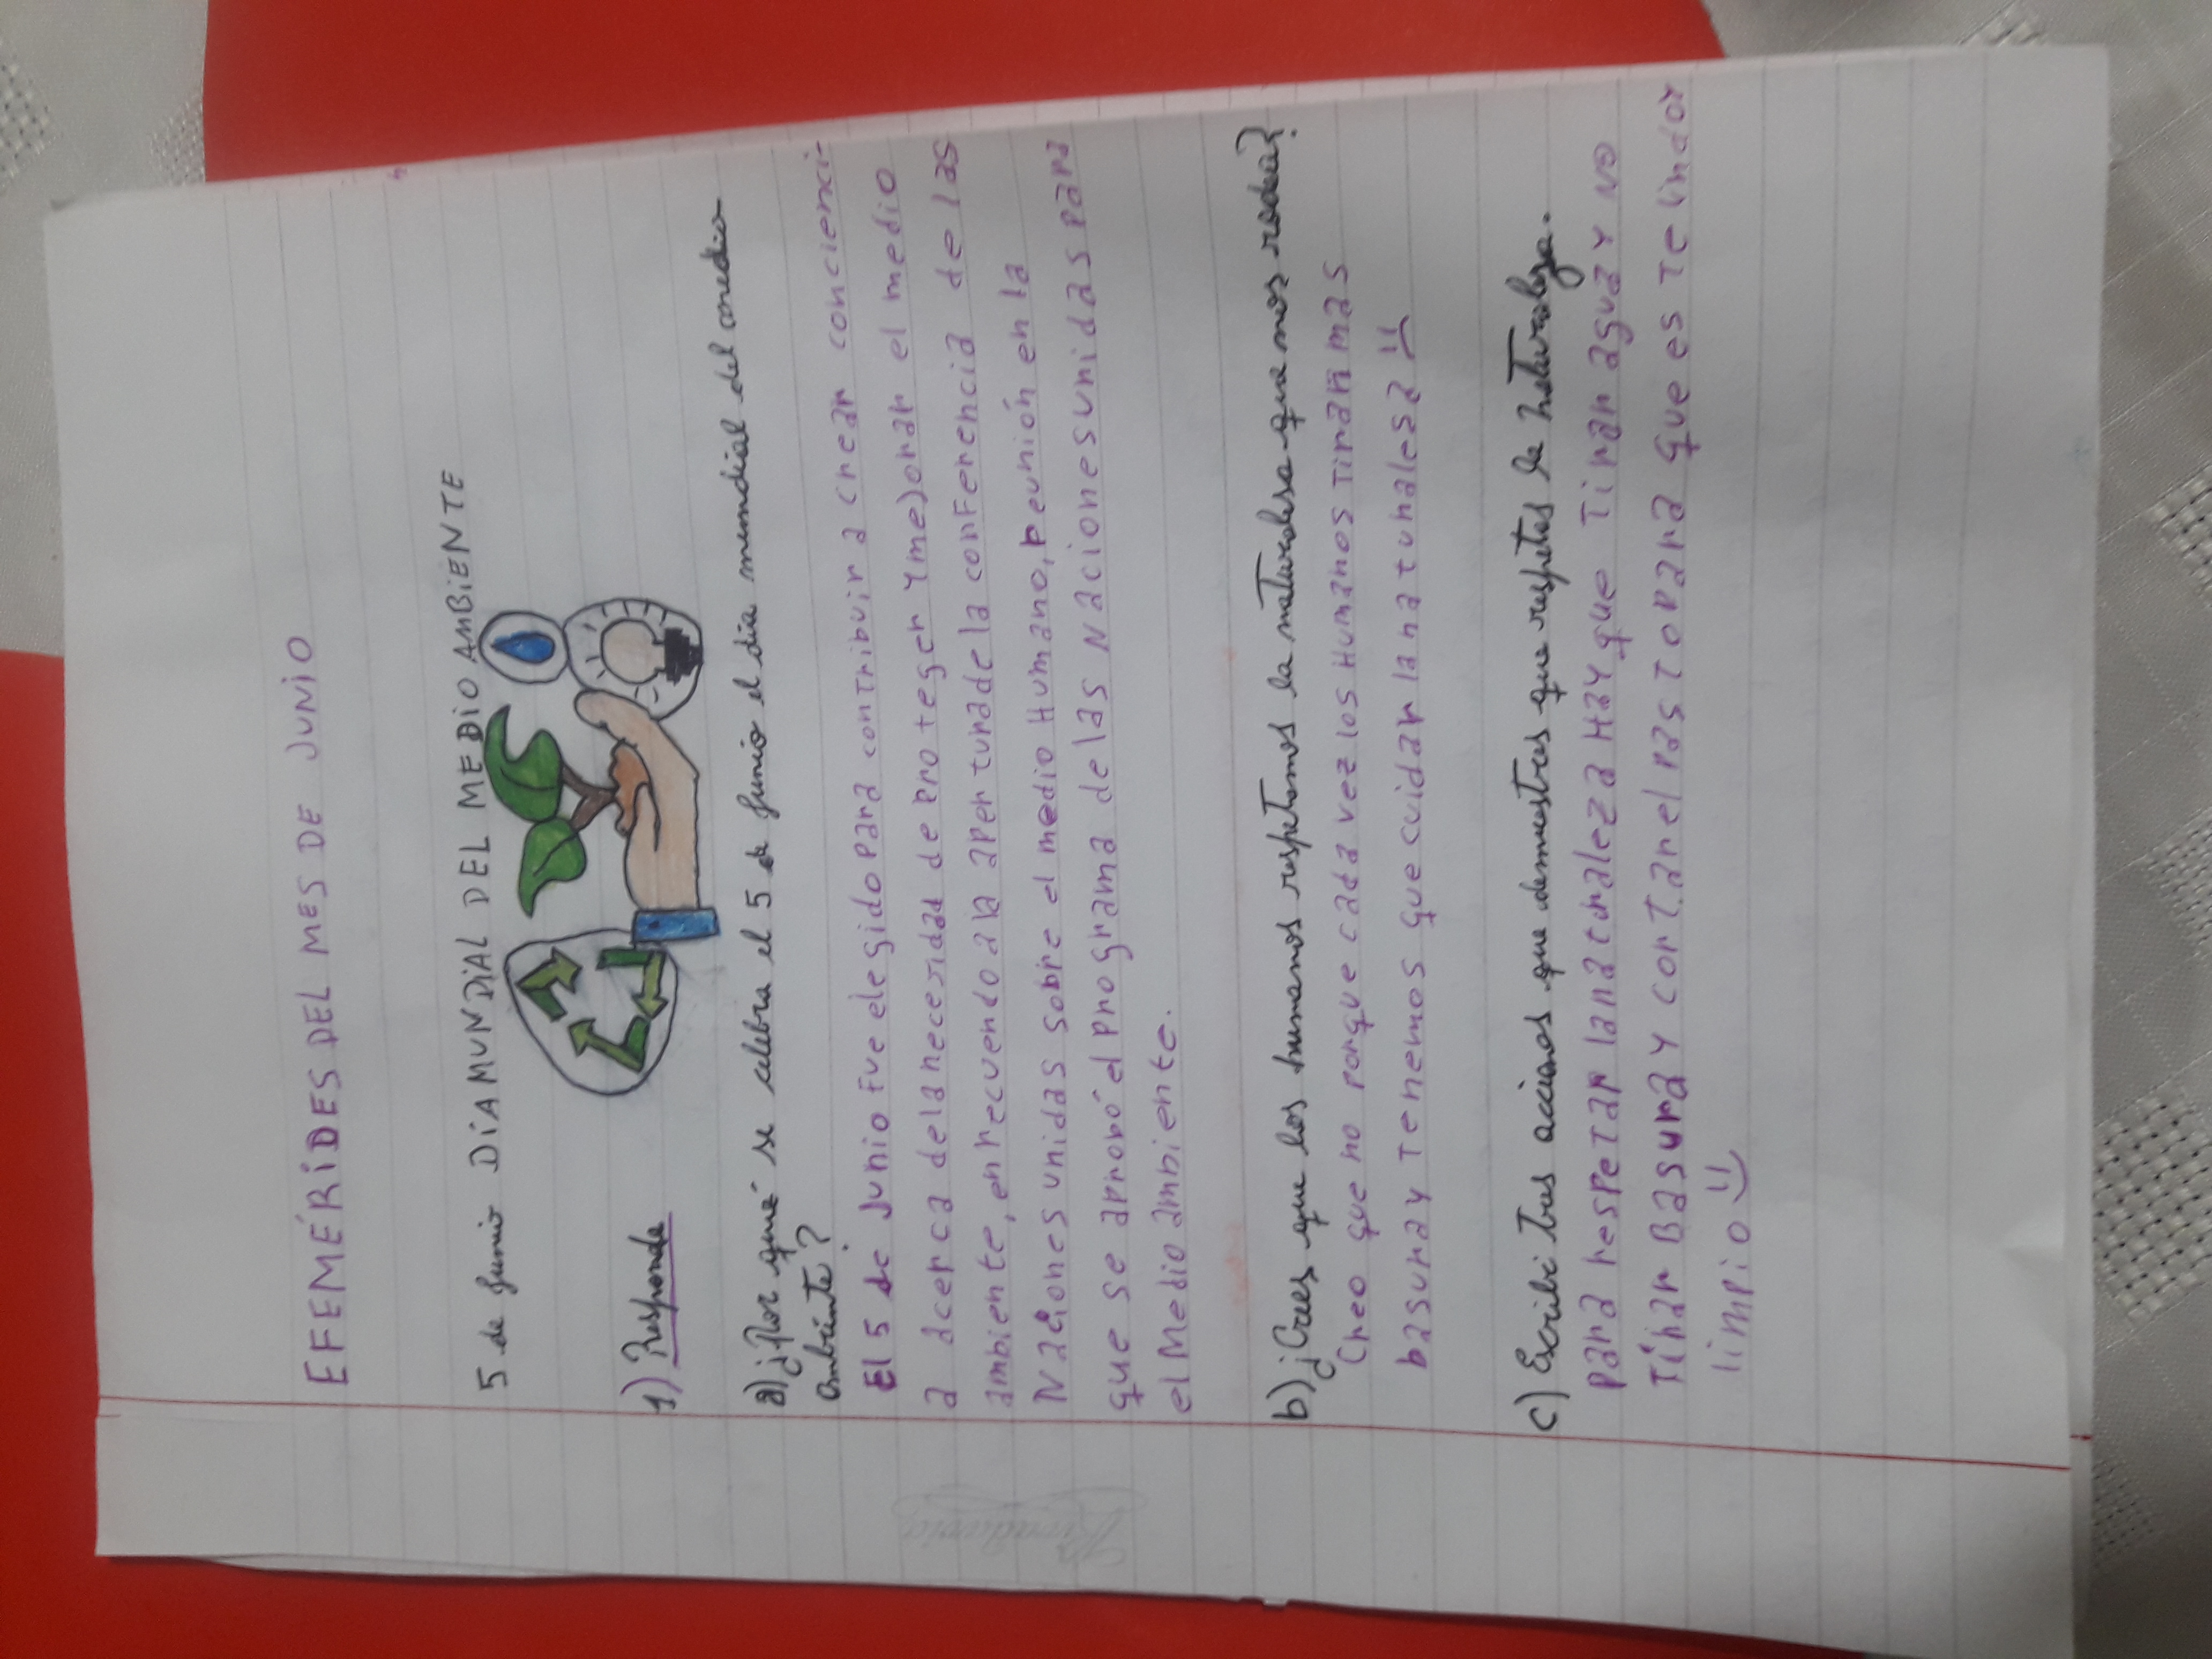 EFEMÉRIDES DEL MES DE JUNIO
5 de Junio DÍA MUNDIAL DEL MEDIO AMBIENTE
1) Responde
a) ¿Por qué se celebra el 5 de Junio el día mundial del medio
ambiente?
El 5 de Junio Fue elegido para contribuir a crear concienci-
a acerca de la necesidad de proteger y mejorar el medio
ambiente, en recuerdo a la apertura de la conferencia de las
Naciones unidas sobre el medio Humano, reunión en la
que se aprobó el programa de las Naciones unidas para
el Medio ambiente.
b) ¿Crees que los humanos respetamos la naturalesa que nos rodea?
Creo que no porque cada vez los Humanos Tiran mas
basura y Tenemos que cuidar la naturalesa :(
c) Escribi tres acciones que demuestres que respetas la naturalesa.
Para respetar la naturaleza Hay que Tirar agua y no
Tirar Basura y cortar el pasto para que este lindo y
limpio :)
Rivadavia